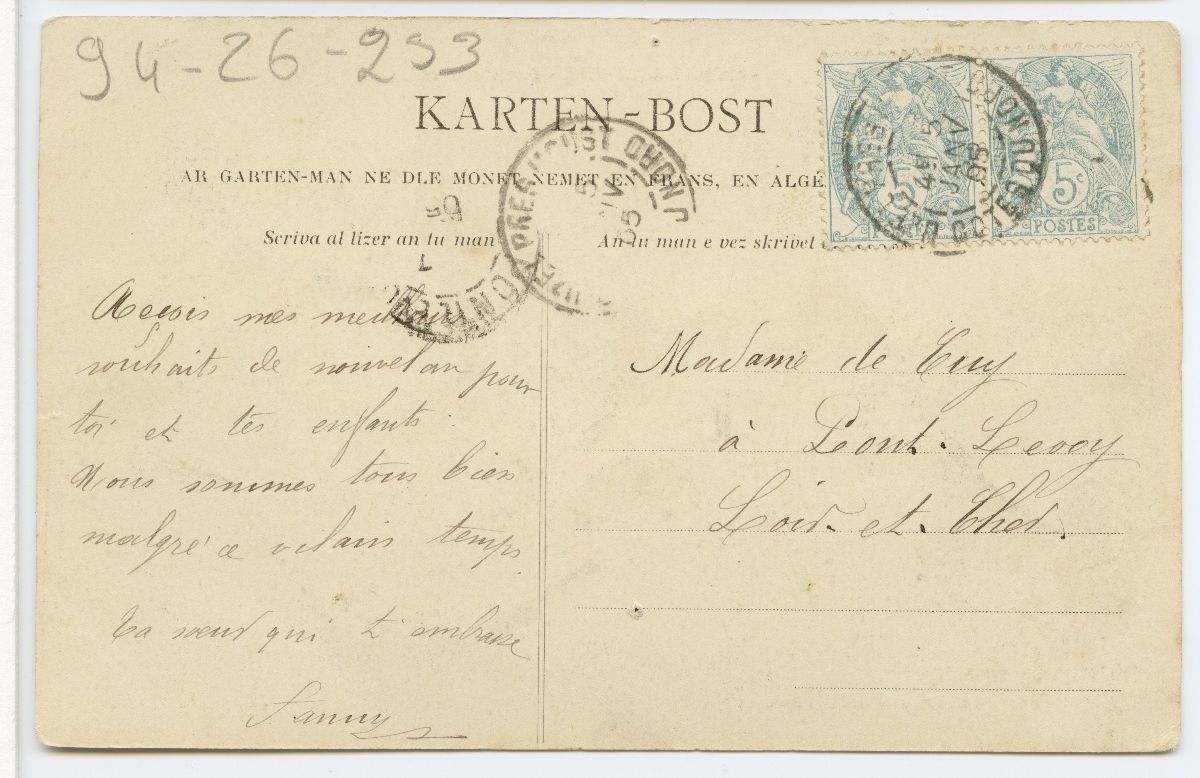 94-26-253
KARTEN-BOST
AR GARTEN-MAN NE DLE MONET NEMET EN FRANS, EN ALGÉ
Scriva al lizer an tu man
An tu man e vez skrivet
5c 5c
POSTES
JANV
05
Recois mes meilleurs
souhaits de nouvel an pour
toi et tes enfants.
Nous sommes tous bien
malgré ce vilain temps
Ta soeur qui t'embrasse
Fanny
Madame de
à Pont-Levoy
Loir-et-Cher.